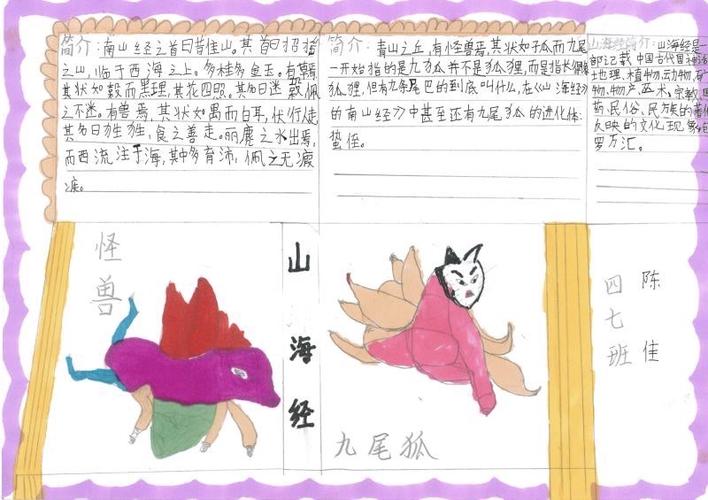 简介:南山经之首曰昔佳山。其首曰招摇
之山，临于西海之上。多桂多金玉。有
其状如毂而黑理，其花四照。其名曰迷 佩
之不迷。有兽焉，其状如禺而白耳，伏行走
其名曰狌狌，食之善走。丽麂之水出焉，
而西流注于海，其中多育沛，佩之无瘕
疾。
简介:青山之丘，有怪兽焉，其状如子瓜而九尾
一开始指的是九 并不是狐狸，而是指长
狐狸，但有九条尾巴的到底叫什么，在《山海经》
的南山经》中甚至还有九尾狐的进化体:
蛰侄。
山海经简介:山海经是一
部记载中国古代神
地理、植物、动物、矿
物、物产、巫术、宗教、
药、民俗、民族的
反映的文化现象
罗万汇。
怪兽
山海经
九尾狐
四七班
陈佳